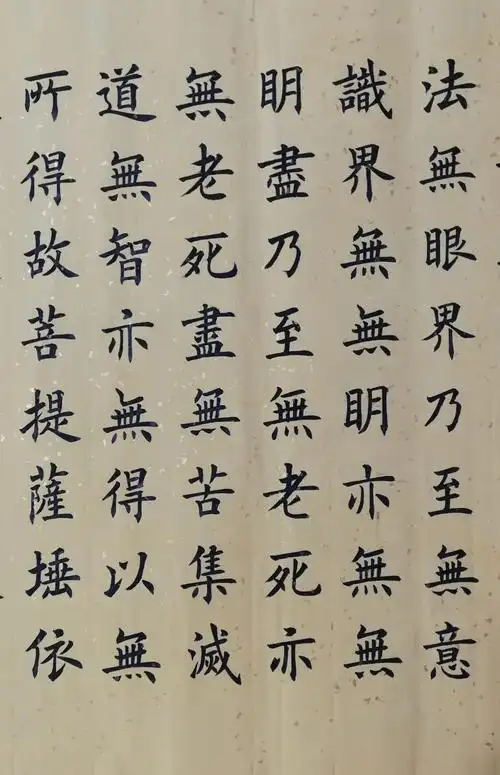 法無眼界乃至無意
識界無無明亦無無
明盡乃至無老死亦
無老死盡無苦集滅
道無智亦無得以無
所得故菩提薩埵依